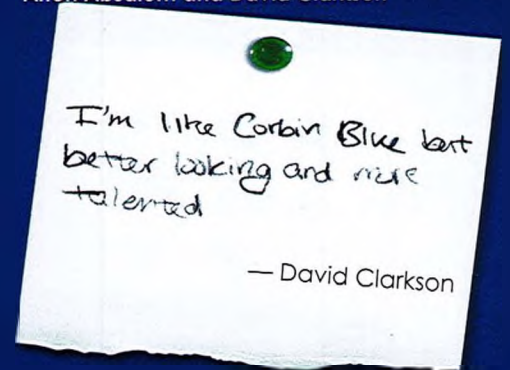 I'm like Corbin Blue but
better looking and more
talented
— David Clarkson